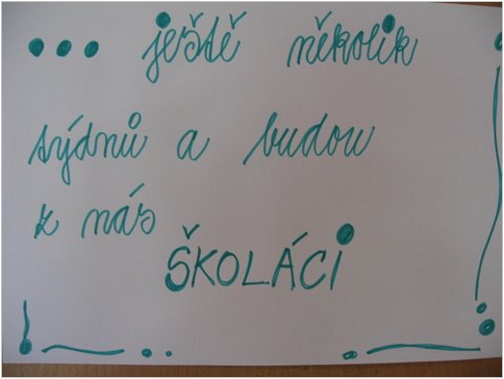 ... ještě několik
týdnů a budou
z nás
ŠKOLÁCi